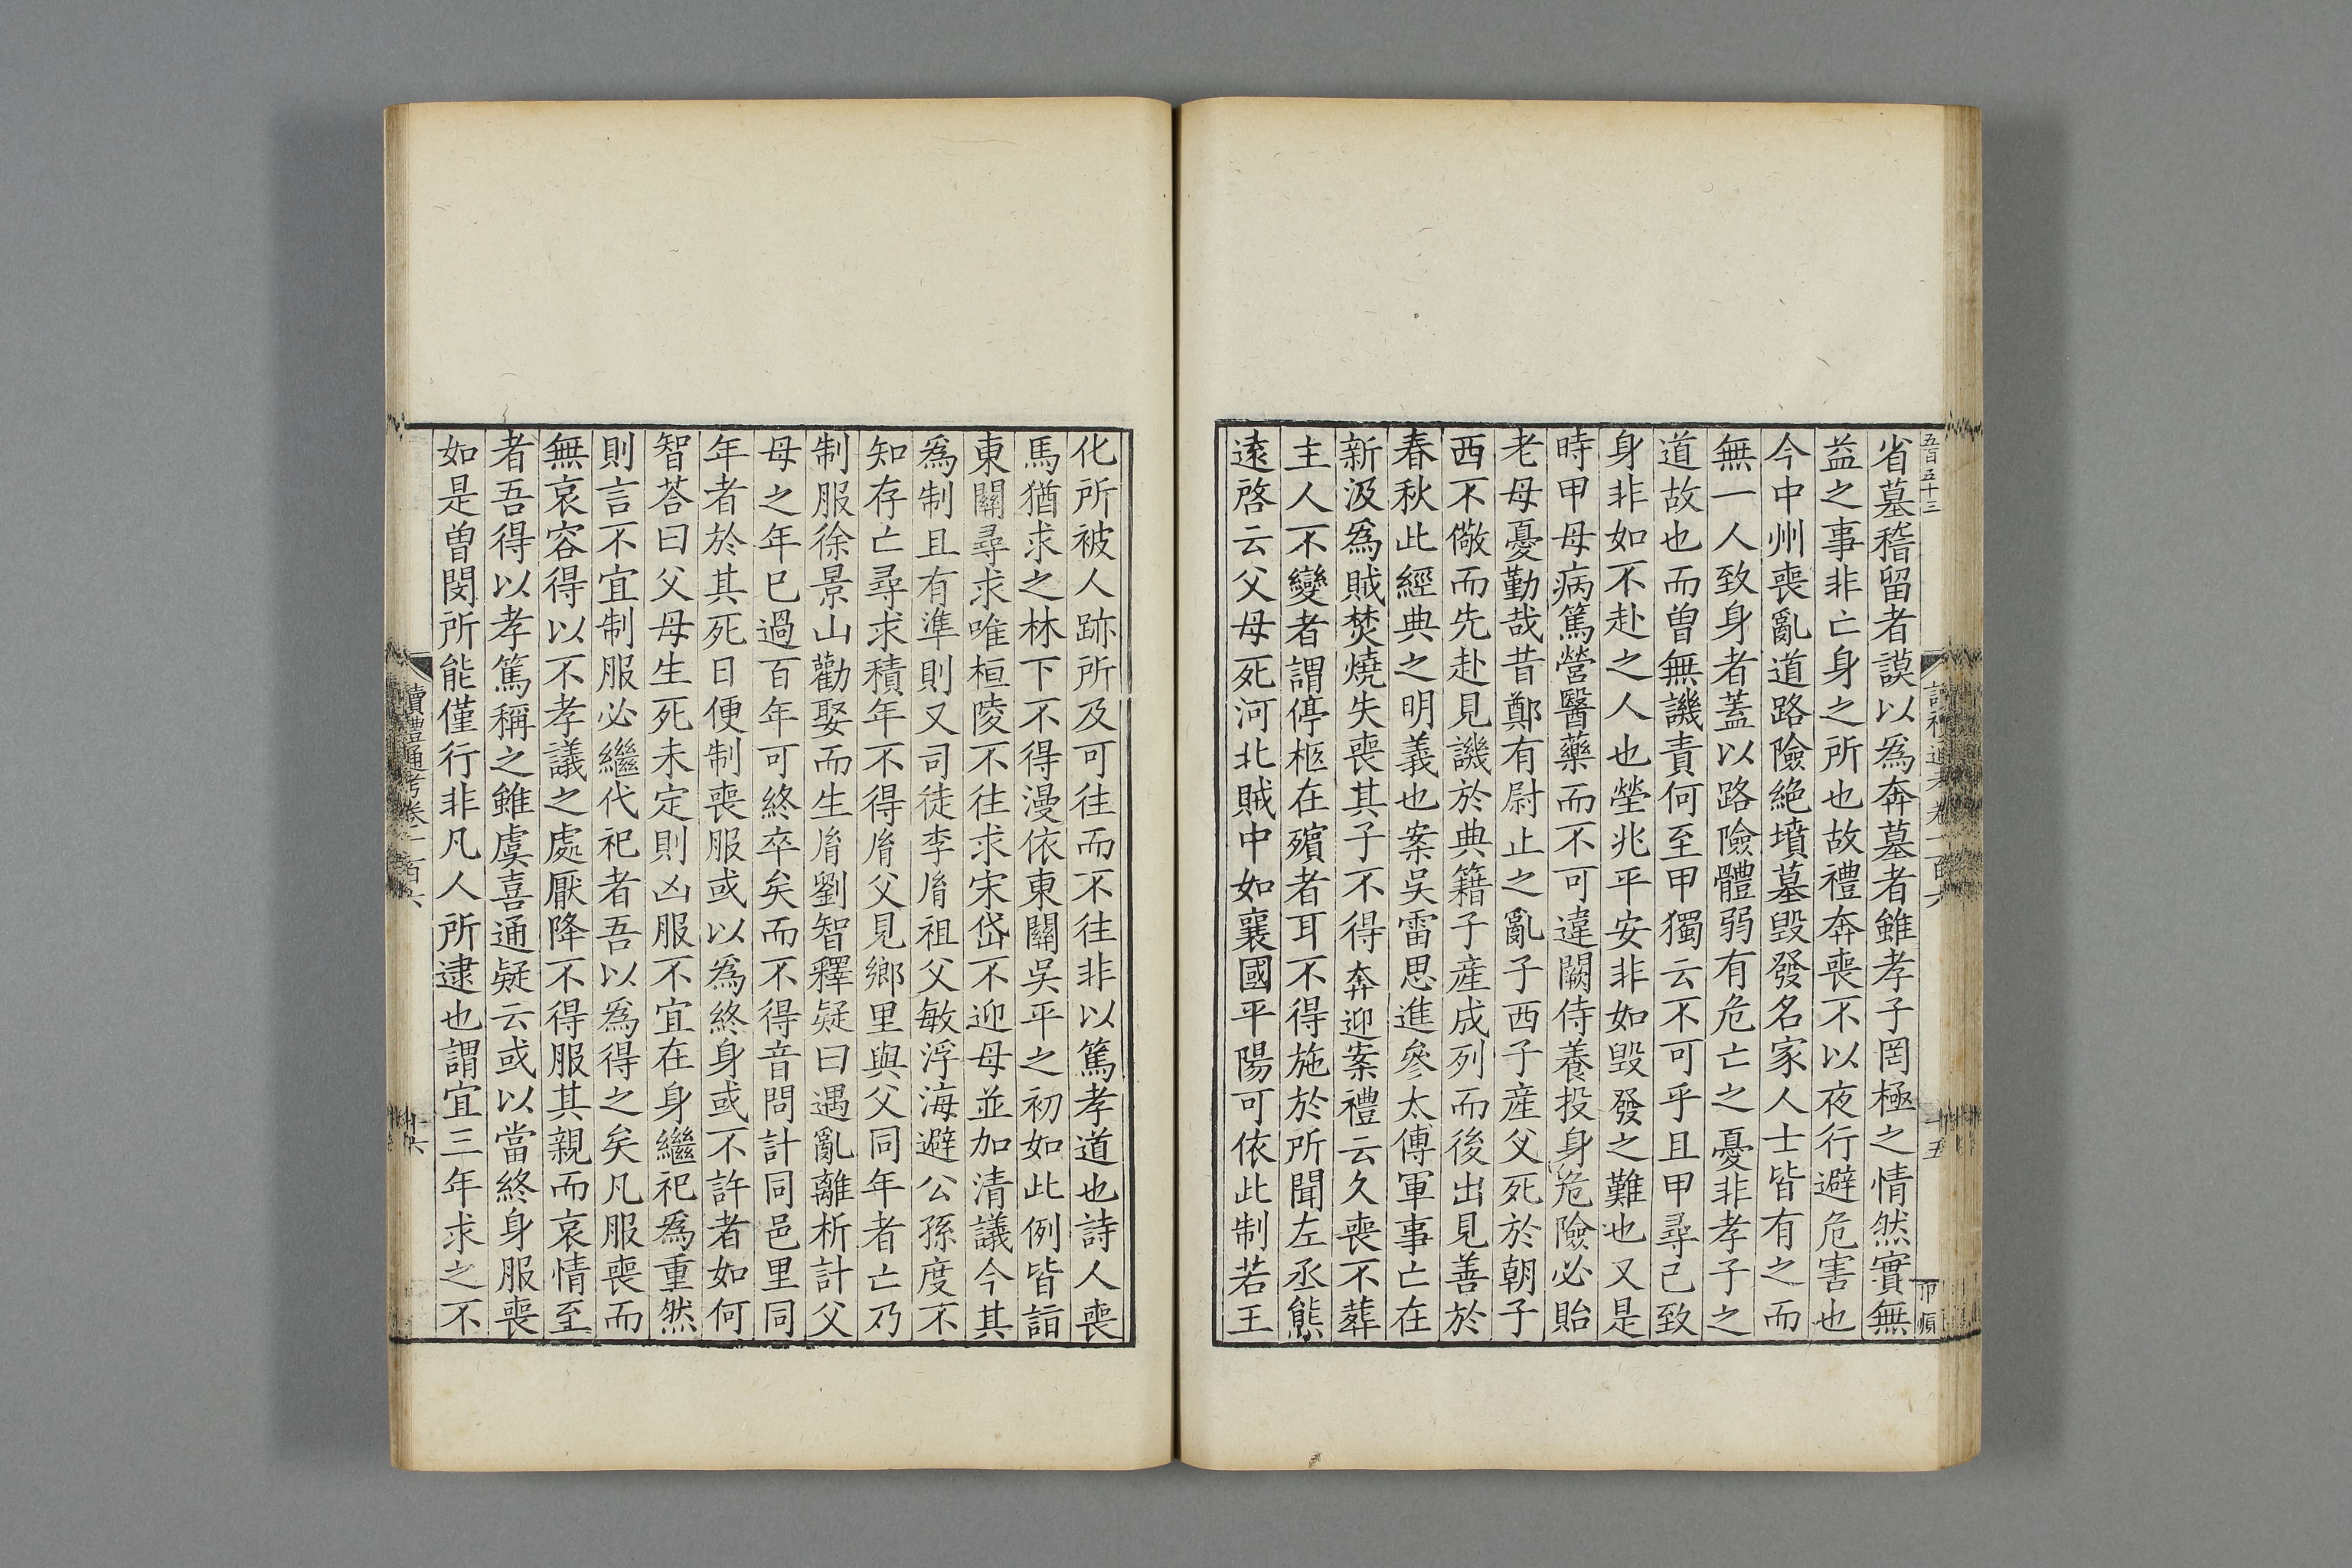 五百五十三
讀禮通考卷一百六
十五
省墓稽留者謨以爲奔墓者雖孝子罔極之情然實無
益之事非亡身之所也故禮奔喪不以夜行避危害也
今中州喪亂道路險絶墳墓毀發名家人士皆有之而
無一人致身者蓋以路險體弱有危亡之憂非孝子之
道故也而曾無譏責何至甲獨云不可乎且甲尋己致
身非如不赴之人也塋兆平安非如毀發之難也又是
時甲母病篤營醫藥而不可違闕侍養投身危險必貽
老母憂勤哉昔鄭有尉止之亂子西子産父死於朝子
西不儆而先赴見譏於典籍子産成列而後出見善於
春秋此經典之明義也案吳雷思進參太傅軍事亡在
新汲爲賊焚燒失喪其子不得奔迎案禮云久喪不葬
主人不變者謂停柩在殯者耳不得施於所聞左丞熊
遠啓云父母死河北賊中如襄國平陽可依此制若王
化所被人跡所及可往而不往非以篤孝道也詩人喪
馬猶求之林下不得漫依東關吳平之初如此例皆詣
東關尋求唯桓陵不往求宋岱不迎母並加清議今其
爲制且有準則又司徒李胤祖父敏浮海避公孫度不
知存亡尋求積年不得胤父見鄉里與父同年者亡乃
制服徐景山勸娶而生胤劉智釋疑曰遇亂離析計父
母之年已過百年可終卒矣而不得音問計同邑里同
年者於其死日便制喪服或以爲終身或不許者如何
智荅曰父母生死未定則凶服不宜在身繼祀爲重然
則言不宜制服必繼代祀者吾以爲得之矣凡服喪而
無哀容得以不孝議之處厭降不得服其親而哀情至
者吾得以孝篤稱之雖虞喜通疑云或以當終身服喪
如是曾閔所能僅行非凡人所逮也謂宜三年求之不
讀禮通考卷一百六
十六